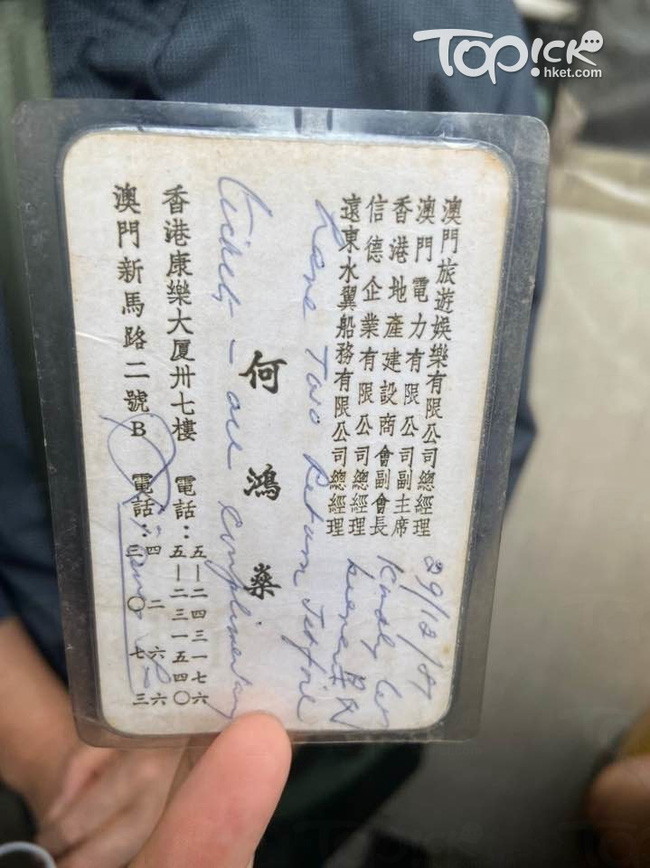 TOPICK
hket.com
澳門旅遊娛樂有限公司總經理
澳門電力有限公司副主席
香港地產建設商會副會長
信德企業有限公司總經理
遠東水翼船務有限公司總經理
何鴻燊
香港康樂大厦卅七樓 電話：五—二四三一七六
五—二三一五四〇
澳門新馬路二號B 電話：四二六六
三〇七三
Kindly let
bearer
have two return Jetfoil
tickets — all complimentary